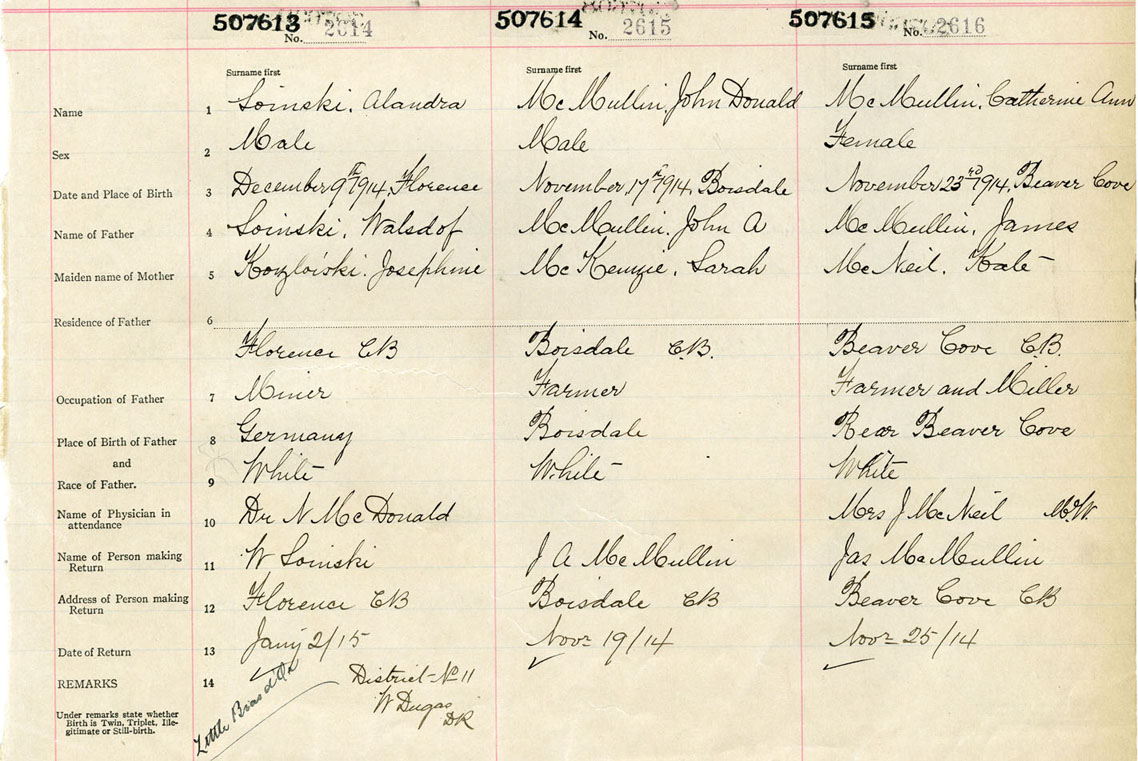 507613 507614 507615
No. 2614 No. 2615 No. 2616
Surname first Surname first Surname first
Name 1 Soinski, Alandra McMullin, John Donald McMullin, Catherine Ann
Sex 2 Male Male Female
Date and Place of Birth 3 December 9th 1914, Florence November 17th 1914, Boisdale November 23rd 1914, Beaver Cove
Name of Father 4 Soinski, Walsdof McMullin, John A McMullin, James
Maiden name of Mother 5 Kozloiski, Josephine McKenzie, Sarah McNeil, Kate
Residence of Father 6
Florence CB Boisdale C.B. Beaver Cove C.B.
Occupation of Father 7 Miner Farmer Farmer and Miller
Place of Birth of Father 8 Germany Boisdale Rear Beaver Cove
and
Race of Father. 9 White White White
Name of Physician in
attendance 10 Dr N McDonald Mrs J McNeil
Name of Person making
Return 11 W Soinski J A McMullin Jas McMullin
Address of Person making
Return 12 Florence CB Boisdale CB Beaver Cove CB
Date of Return 13 Jany 2/15 Novr 19/14 Novr 25/14
REMARKS 14 District No 11
W Dugas
DR
Little Bras d'Or
Under remarks state whether
Birth is Twin, Triplet, Ille-
gitimate or Still-birth.